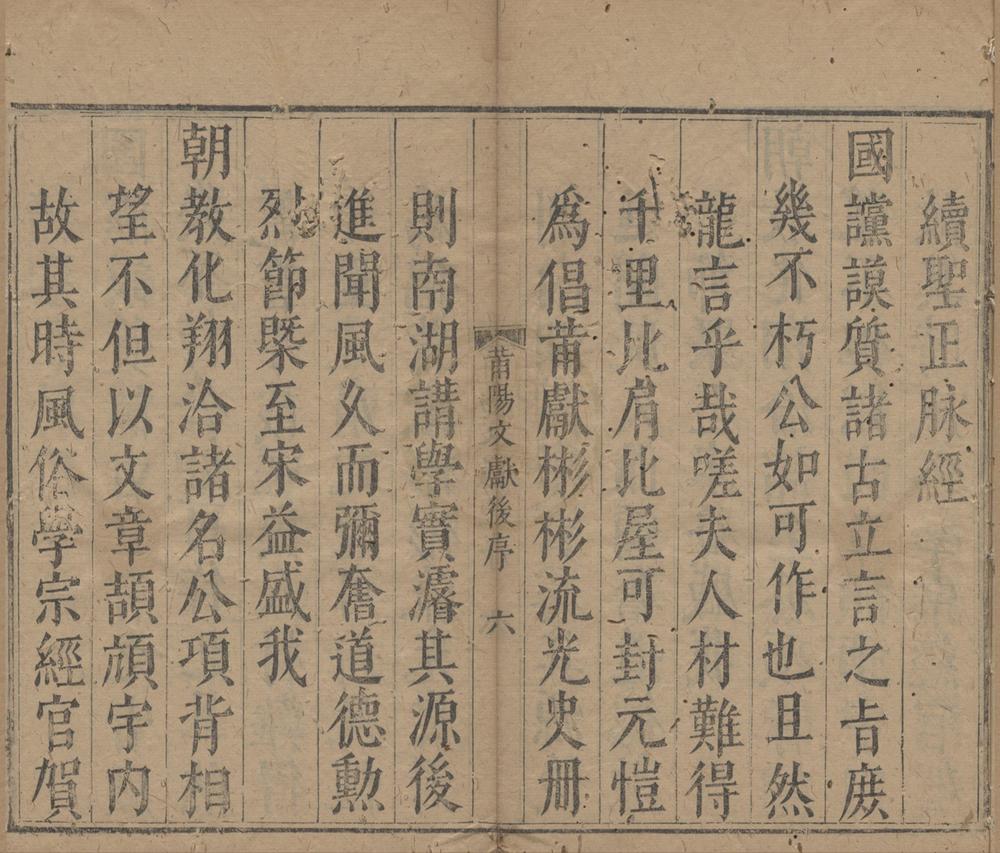 續聖正脉經
國讜謨質諸古立言之旨庶
幾不朽公如可作也且然
瀧言乎哉嗟夫人材難得
千里比肩比屋可封元愷
爲倡莆獻彬彬流光史冊
莆陽文獻後序 六
則南湖講學實濬其源後
進聞風久而彌奮道德勳
烈節槩至宋益盛我
朝教化翔洽諸名公項背相
望不但以文章頡頏宇内
故其時風俗學宗經官賀